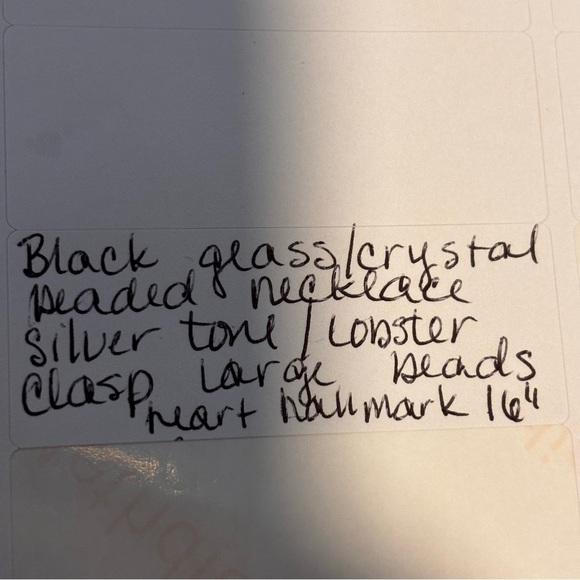 Black glass/crystal
beaded necklace
silver tone/lobster
clasp large beads
heart hallmark 16"